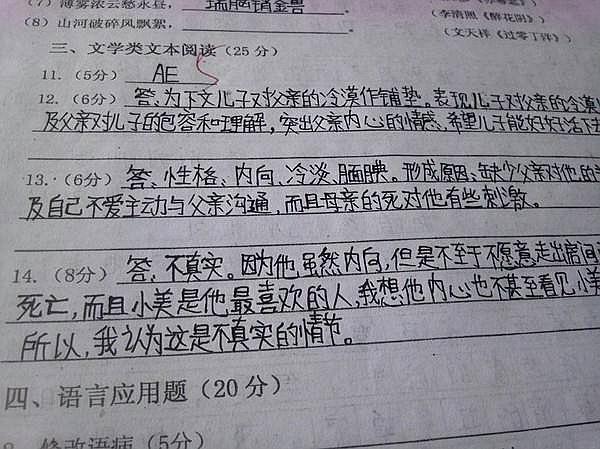 (7) 薄雾浓云愁永昼,瑞脑销金兽 (李清照《醉花阴》)
(8) 山河破碎风飘絮, (文天祥《过零丁洋》)
三、文学类文本阅读(25分)
11.(5分) AE 5
12.(6分) 答:为下文儿子对父亲的冷漠作铺垫。表现儿子对父亲的冷漠
及父亲对儿子的包容和理解,突出父亲内心的情感、希望儿子能好好活下去
13.(6分) 答:性格、内向、冷淡、腼腆。形成原因:缺少父亲对他的
及自己不爱主动与父亲沟通,而且母亲的死对他有些刺激。
14.(8分) 答:不真实。因为他虽然内向,但是不至于不愿意走出房间
死亡,而且小美是他最喜欢的人,我想他内心也不甚至看见小美
所以,我认为这是不真实的情节。
四、语言应用题(20分)
修改语病(5分)